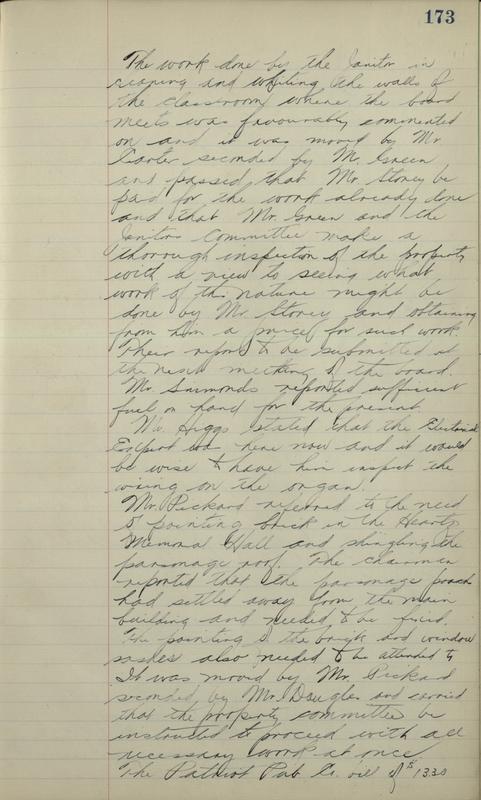 173
The work done by the Janitor in
scraping and whiting the walls of
the classroom where the board
meets was favourably commented
on and it was moved by Mr.
Carter seconded by Mr. Green
and passed that Mr. Storey be
paid for the work already done
and that Mr. Green and the
Janitors Committee make a
thorough inspection of the property
with a view to seeing what
work of this nature might be
done by Mr. Storey and obtaining
from him a price for such work
Their report to be submitted at
the next meeting of the board.
Mr. Simmonds reported sufficient
fuel on hand for the present
Mr. Higgs stated that the Electrical
Expert was here now and it would
be wise to have him inspect the
wiring on the organ.
Mr. Pickard referred to the need
of pointing brick in the
Memorial Hall and shingling the
parsonage roof. The chairman
reported that the parsonage porch
had settled away from the main
building and needed to be fixed.
The pointing of the brick and window
sashes also needed to be attended to
It was moved by Mr. Pickard
seconded by Mr. Douglas and carried
that the property committee be
instructed to proceed with all
necessary work at once
The Patriot Pub Co. of $13.30